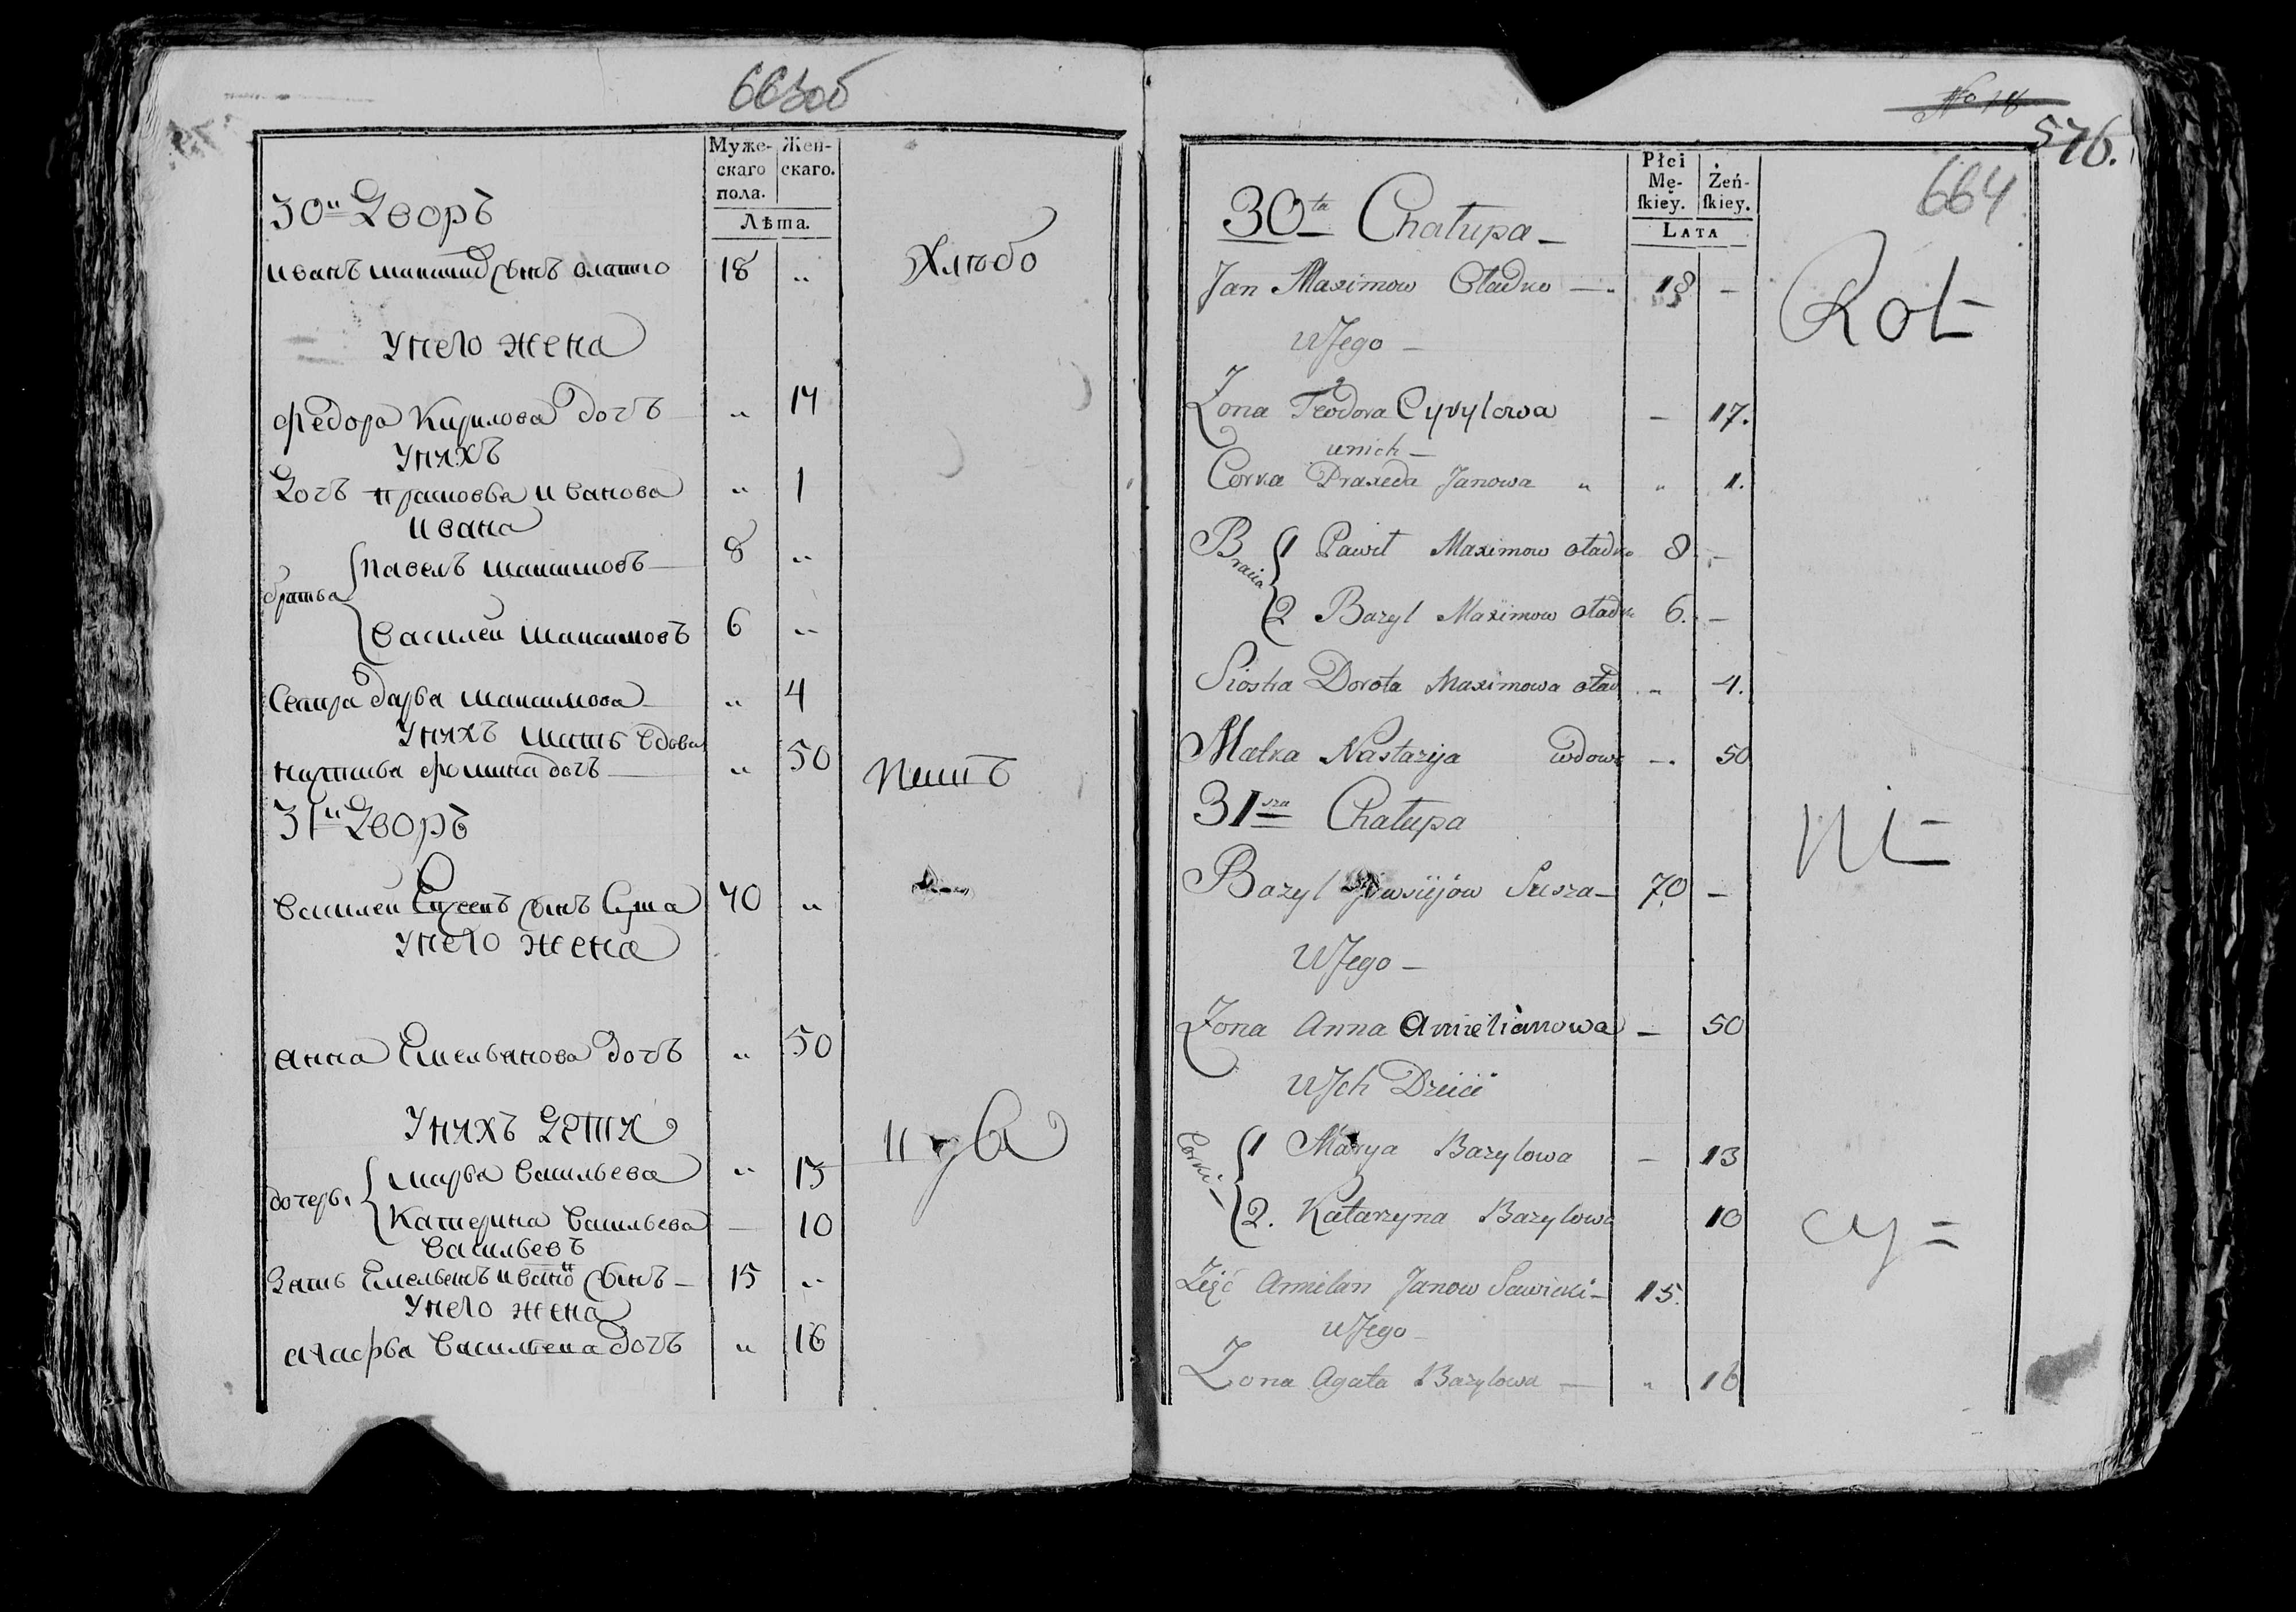 663об
Муже-
скаго
пола.
Жен-
скаго.
Лѣта.
30й Дворъ
Иванъ Максимовъ сынъ 18 „
Хлѣбо
У него жена
Федора Кирилова дочь „ 17
У нихъ
Дочь Прасковья Иванова „ 1
Ивана
братья
Павелъ Максимовъ 8 „
Василей Максимовъ 6 „
Сестра Дарья Максимова „ 4
У нихъ мать вдова
Фомина дочь „ 50
пашъ
31й Дворъ
Василей сынъ Суша 70 „
У него жена
Анна Емельянова дочь „ 50
У нихъ Дети
дочери
Марья Васильева „ 13
Катерина Васильева — 10
Васильевъ
Зять Емельянъ Ивановъ сынъ — 15 „
У него жена
Агафья Васильева дочь „ 16
No 18
576.
664
Płci
Mę-
ſkiey.
Żeń-
ſkiey.
LATA
30ta Chałupa —
Jan Maximow Oładko — 18 —
Rol=
U Jego —
Żona Teodora Cyrylowa — 17.
u nich —
Corka Praxeda Janowa „ „ 1.
Bracia
1 Paweł Maximow oładko 8 —
2 Bazyl Maximow oładko 6. —
Siostra Dorota Maximowa oład „ 4.
Matka Nastazija wdowa — 50
31sza Chałupa
ni=
Bazyl Suszа — 70 —
U Jego —
Żona Anna Amelianowa — 50
U Ich Dzieci
Corki —
1 Marya Bazylowa — 13
2. Katarzyna Bazylowa 10
cy=
Zięć Amilan Janow Sawicki — 15.
U Jego —
Żona Agata Bazylowa — „ 16